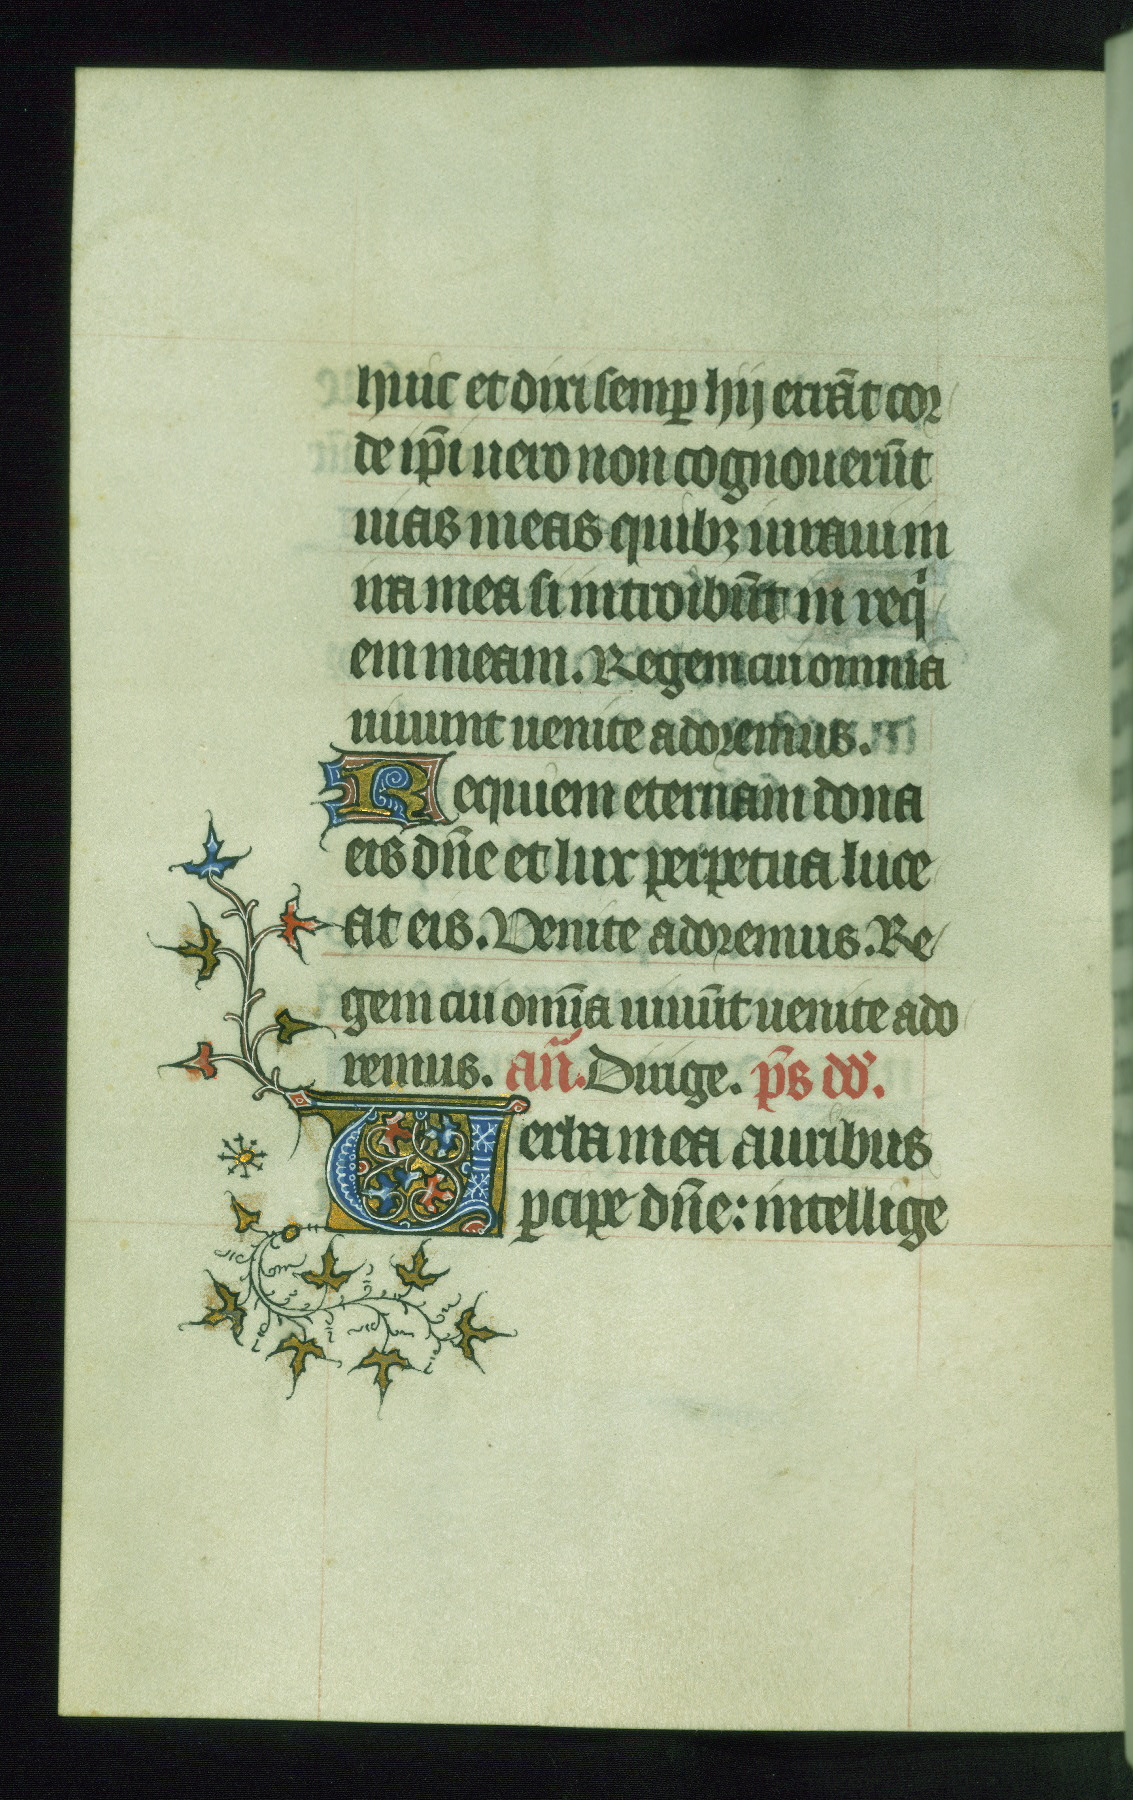 huic et dixi semp̱ hij errāt cor
de ip̄i uero non cognouerūt
uias meas quibꝫ iuraui in
ira mea si introibūt in reqi
em meam. Regem cui omnia
uiuunt uenite adoremus.
Requiem eternam dona
eis dn̄e et lux perpetua luce
at eis. Venite adoremus. Re
gem cui om̄ia uiuūt uenite ado
remus. an̄. Dirige. ps̄ dd̄.
Uerba mea auribus
ꝑcipe dn̄e: intellige